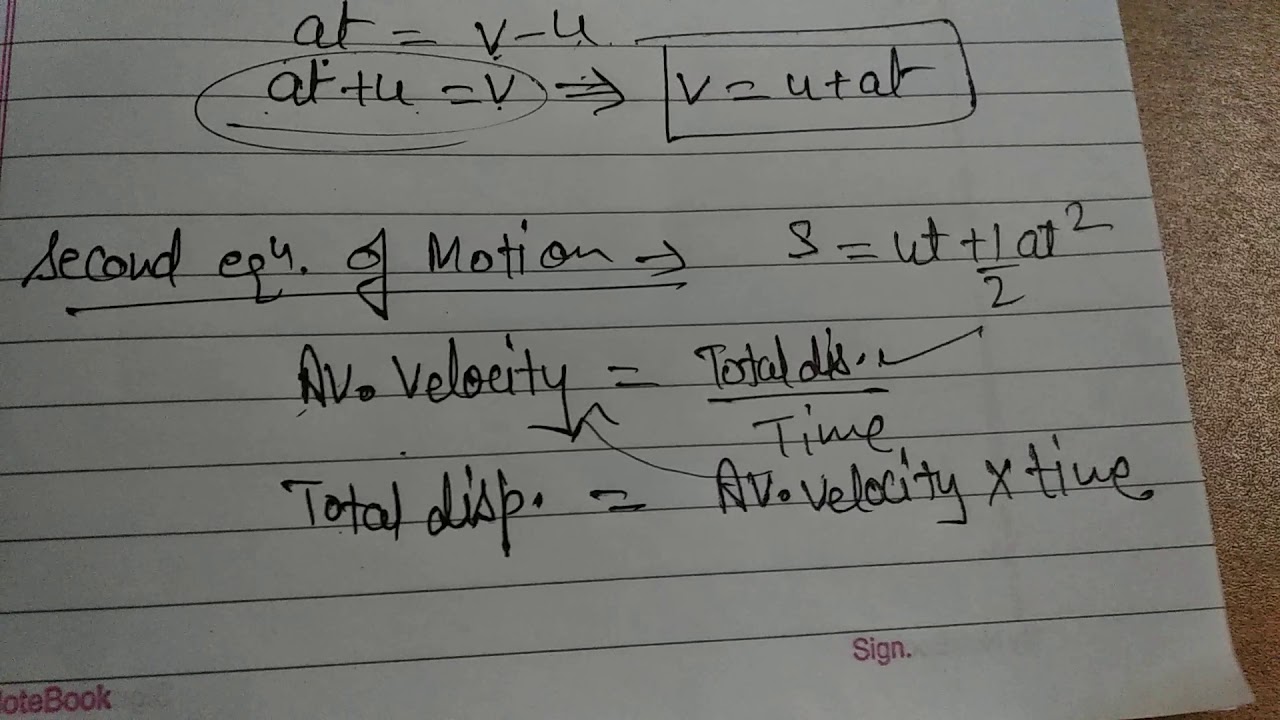 at = v-u
at+u = v ⇒ v = u+at
Second eqn. of Motion → S = ut + 1/2 at²
Av. Velocity = Total dis. / Time
Total disp. = Av. velocity x time
Sign.
NoteBook